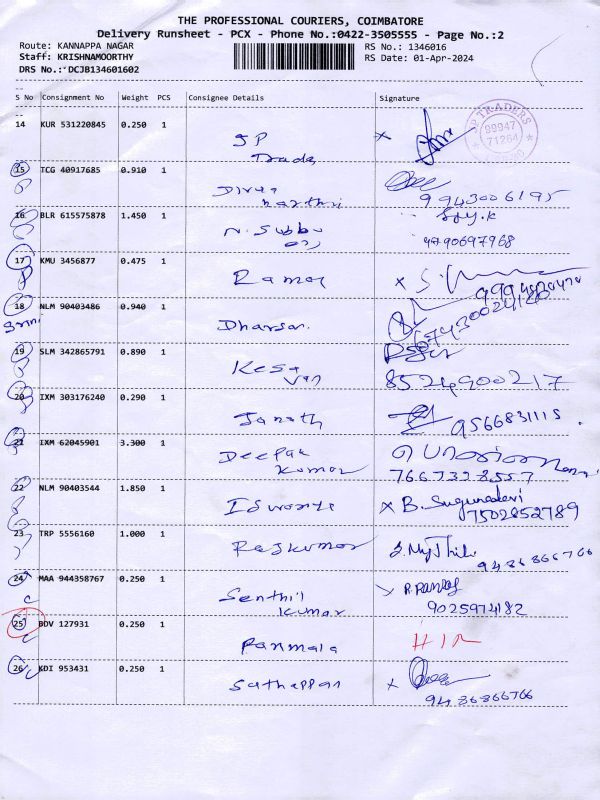 THE PROFESSIONAL COURIERS, COIMBATORE
Delivery Runsheet - PCX - Phone No.:0422-3505555 - Page No.:2
Route: KANNAPPA NAGAR RS No.: 1346016
Staff: KRISHNAMOORTHY RS Date: 01-Apr-2024
DRS No.: DCJB134601602
S No Consignment No Weight PCS Consignee Details Signature
14 KUR 531220845 0.250 1 SP
Trade
TRADERS
99947
71264
15 TCG 40917685 0.910 1 Divya
harthri
9943006195
16 BLR 615575878 1.450 1 N. Subbu
4790697968
17 KMU 3456877 0.475 1 Raman
18 NLM 90403486 0.940 1 Dharsan.
19 SLM 342865791 0.890 1 Kesa
van
8524900217
20 IXM 303176240 0.290 1 Janath
9566831115
21 IXM 62045901 3.300 1 Deepak
Kumar
7667398557
22 NLM 90403544 1.850 1 Iswarya X B. Sugunadevi
7502852789
23 TRP 5556160 1.000 1 Rajkumar J. MyThili
9486866766
24 MAA 944358767 0.250 1 Senthil
Kumar
9025974182
25 BDV 127931 0.250 1 Panmala
26 KDI 953431 0.250 1 Sathappan X
9486866766